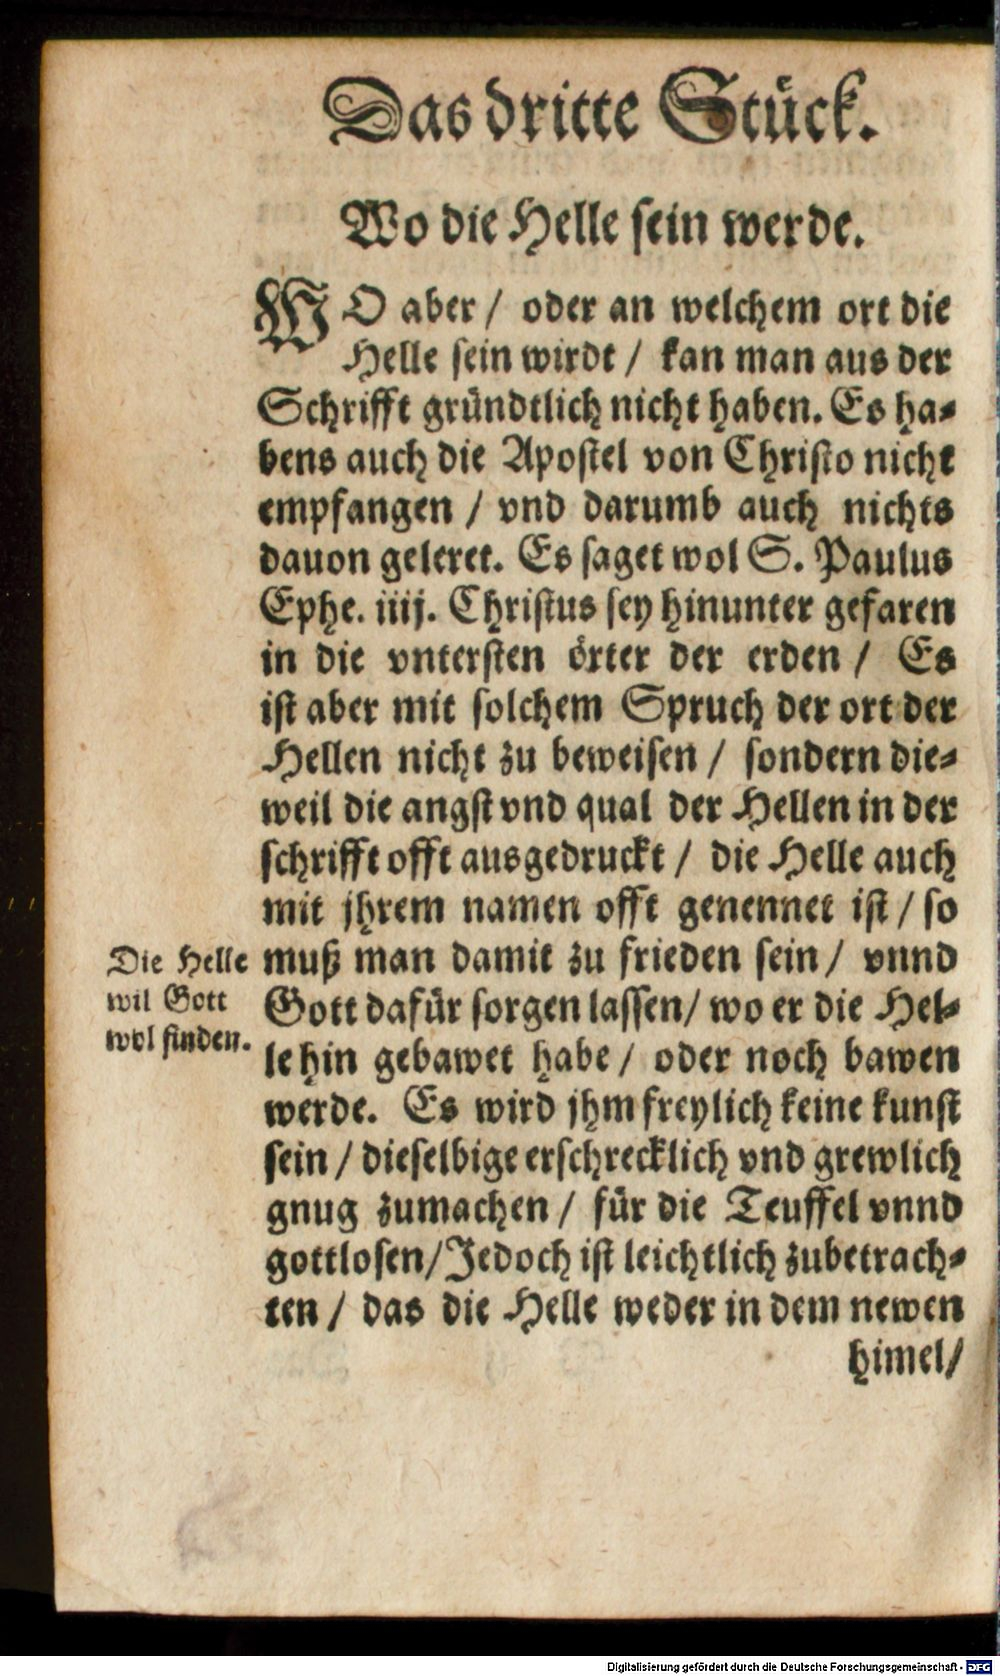 Das dritte Stück.
Wo die Helle sein werde.
WO aber / oder an welchem ort die
Helle sein wirdt / kan man aus der
Schrifft gründtlich nicht haben. Es ha-
bens auch die Apostel von Christo nicht
empfangen / vnd darumb auch nichts
dauon geleret. Es saget wol S. Paulus
Ephe. iiij. Christus sey hinunter gefaren
in die vntersten örter der erden / Es
ist aber mit solchem Spruch der ort der
Hellen nicht zu beweisen / sondern die-
weil die angst vnd qual der Hellen in der
schrifft offt ausgedruckt / die Helle auch
mit jhrem namen offt genennet ist / so
muß man damit zu frieden sein / vnnd
Gott dafür sorgen lassen / wo er die Hel-
le hin gebawet habe / oder noch bawen
werde. Es wird jhm freylich keine kunst
sein / dieselbige erschrecklich vnd grewlich
gnug zumachen / für die Teuffel vnnd
gottlosen / Jedoch ist leichtlich zubetrach-
ten / das die Helle weder in dem newen
himel /
Die Helle
wil Gott
wol finden.
Digitalisierung gefördert durch die Deutsche Forschungsgemeinschaft - DFG